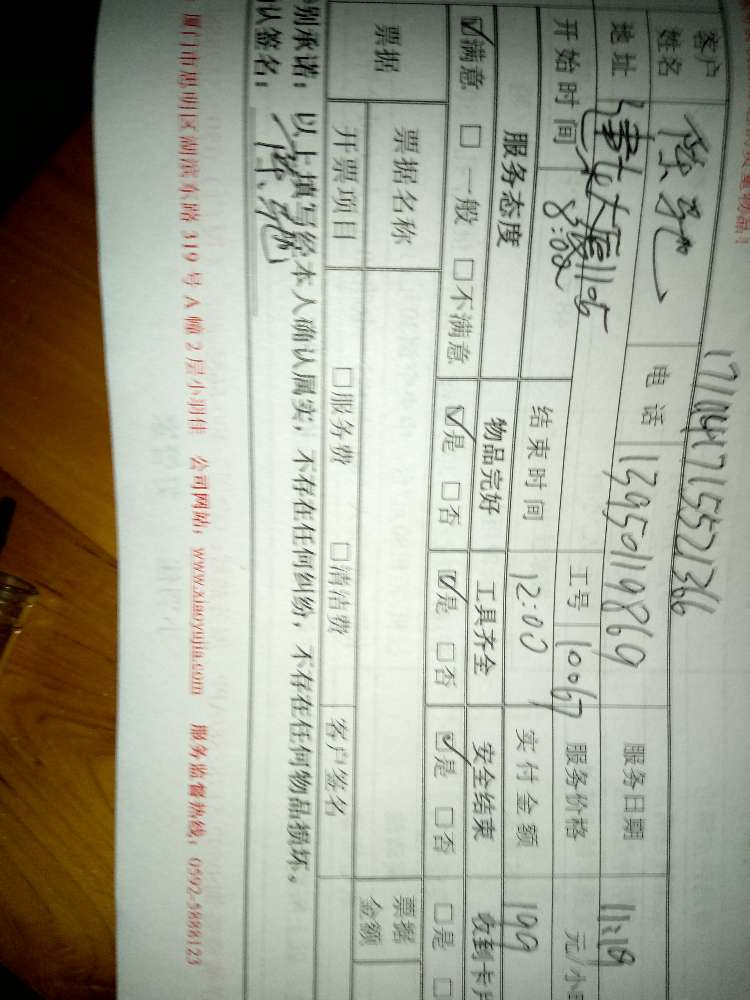 171014715521366
客户姓名 陈 电话 13950119869 服务日期 11.19
地址 建龙大厦1105 工号 10067 服务价格 元/小
开始时间 8:00 结束时间 12:00 实付金额 199
服务态度 物品完好 工具齐全 安全结束 收到卡片
☑满意 □一般 □不满意 ☑是 □否 ☑是 □否 ☑是 □否 □是
票据 票据名称 票据金额
开票项目 □服务费 □清洁费 客户签名
别承诺：以上填写经本人确认属实，不存在任何纠纷，不存在任何物品损坏。
认签名：陈
厦门市思明区湖滨东路 319 号 A 幢 2 层小羽佳 公司网站：www.xiaoyujia.com 服务监督热线：0592-5888123